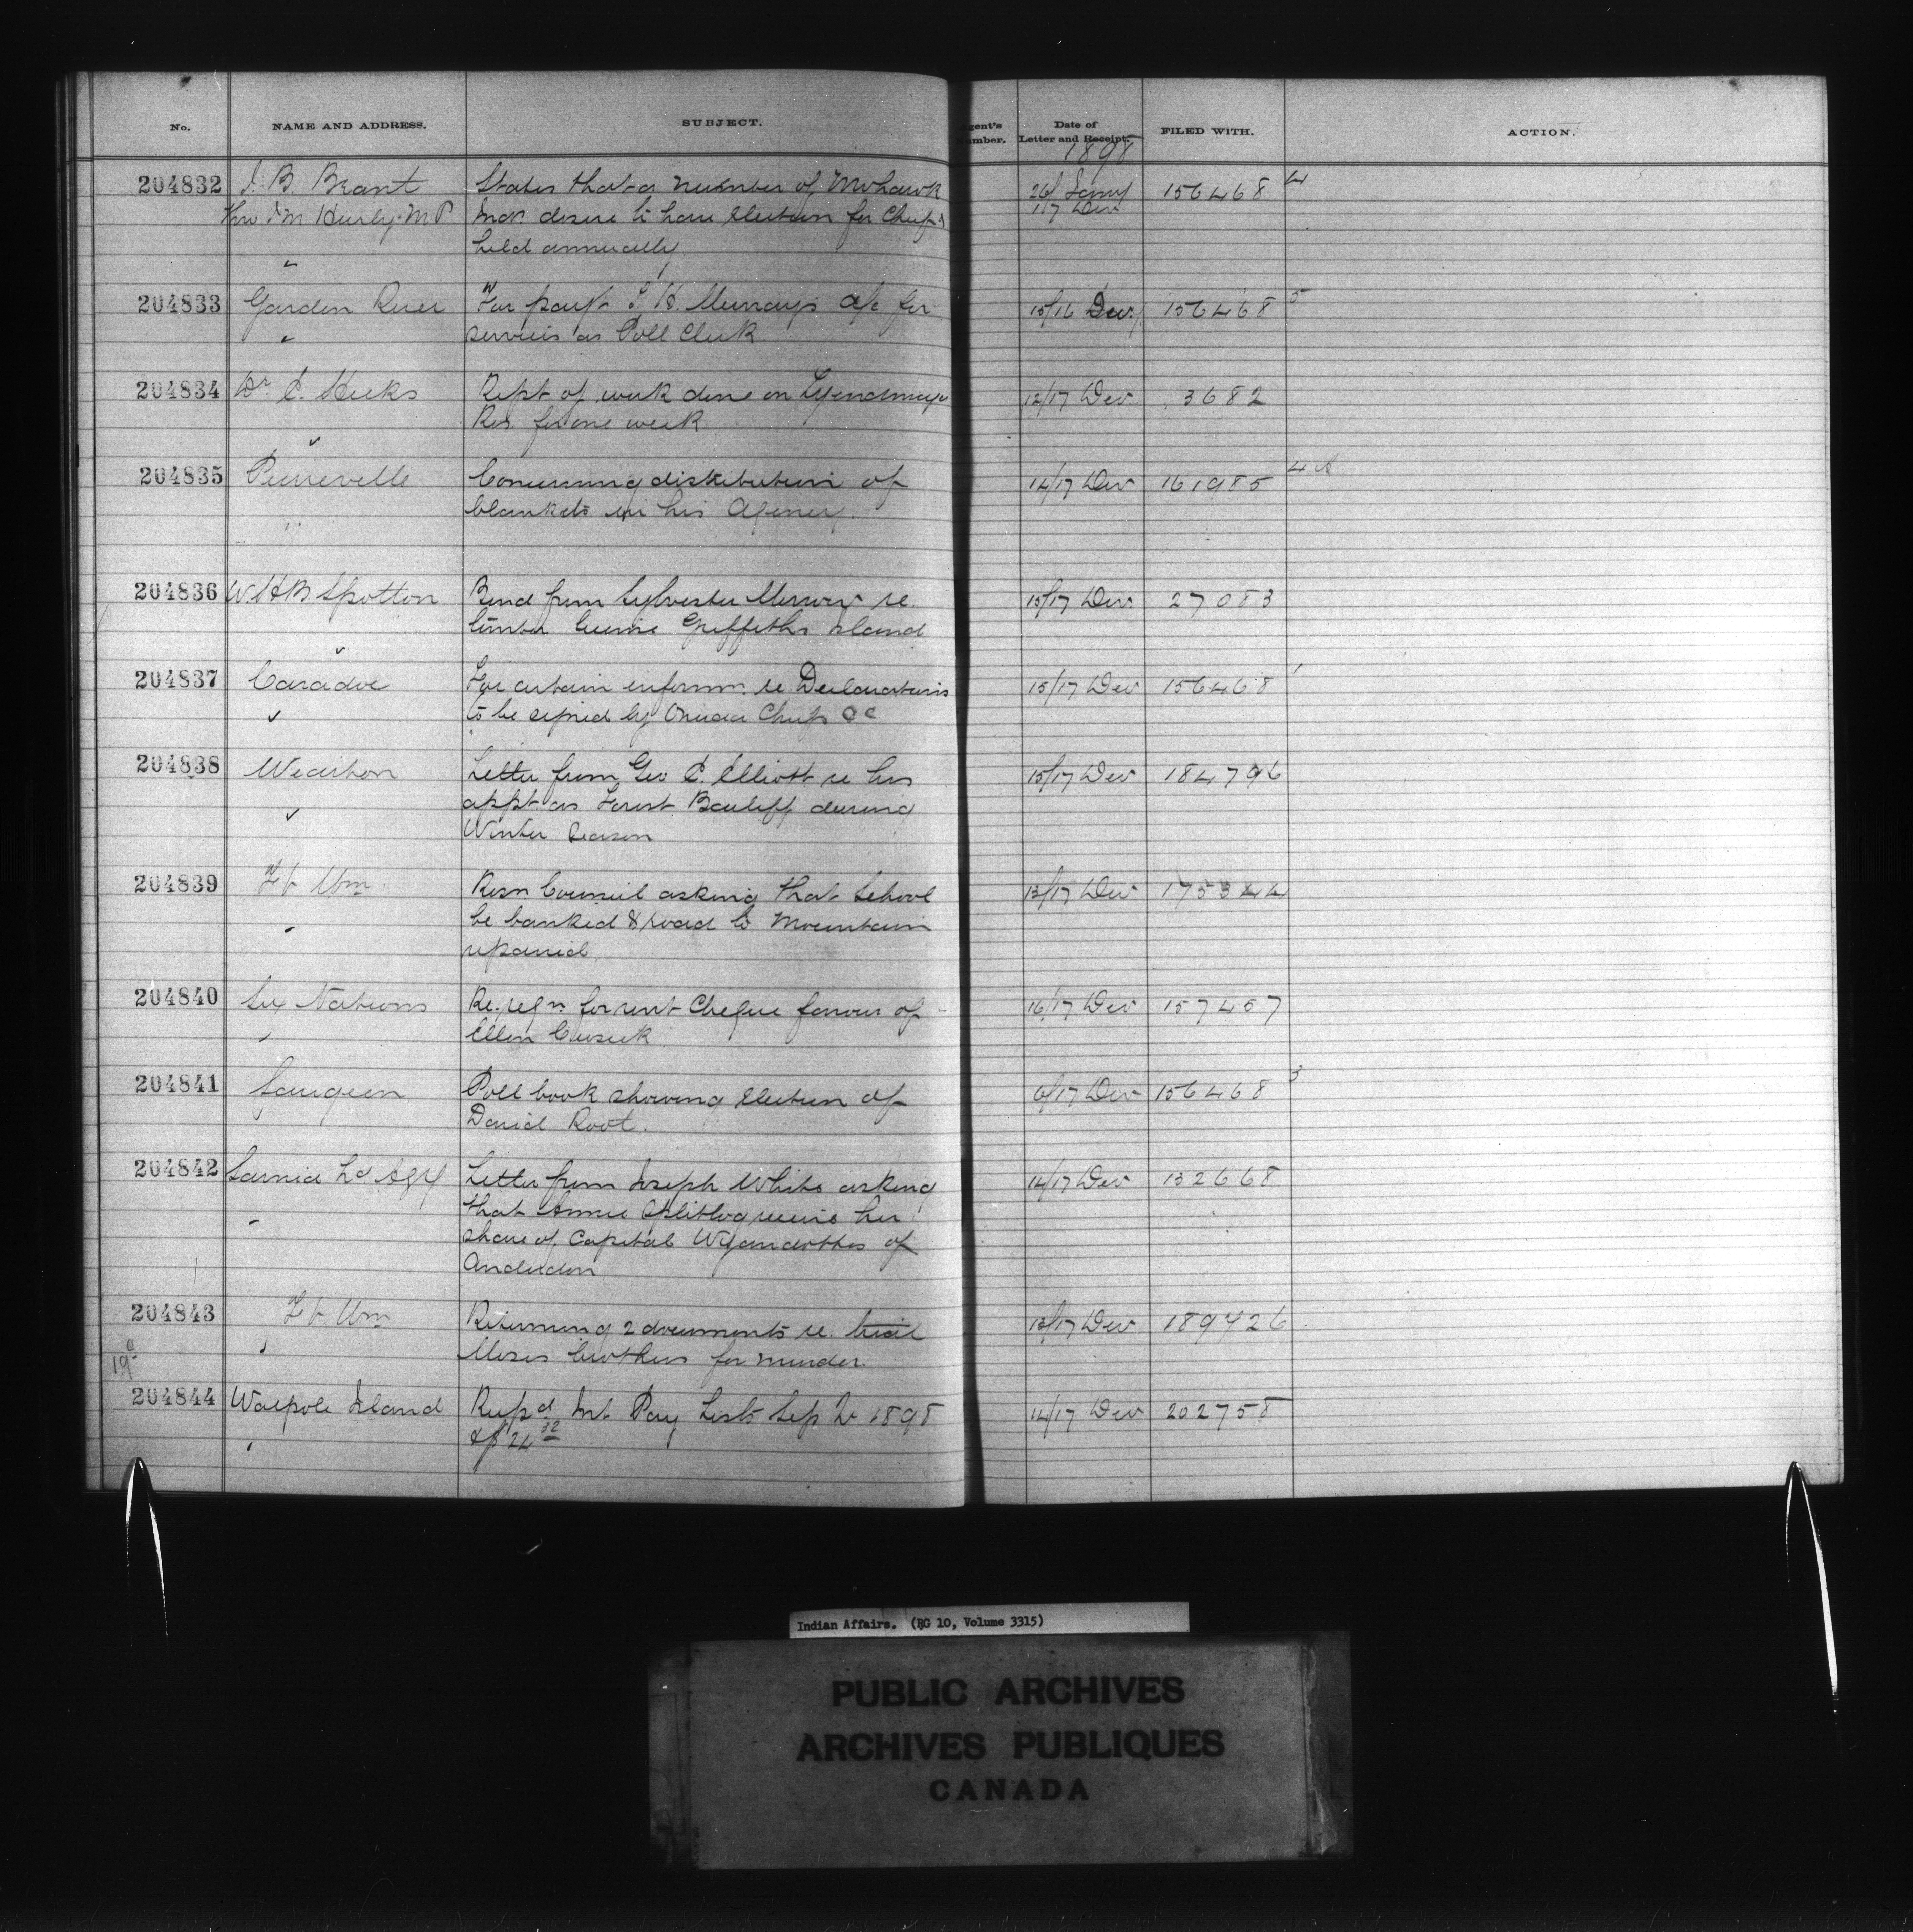 No. NAME AND ADDRESS. SUBJECT. Agent's Number. Date of Letter and Receipt. FILED WITH. ACTION.
1898
204832 J. B. Brant States that a number of Mohawk 26/ Jany 156468 4
thro M Hurly M P Inds desire to have election for Chiefs 17 Dec
held annually
204833 Garden River For payt H. Murray's a/c for 15/16 Dec. 156468 5
services as Poll Clerk
204834 Dr. Rept of work done on Tyendinaga 12/17 Dec. 3682
Res. for one week
204835 Pierreville Concerning distribution of 14/17 Dec 161985 4
blankets in his Agency.
204836 W. H. B. Spotton Bond from Sylvester re 15/17 Dec. 27083
timber license Griffiths Island
204837 Caradoc For certain inform. re Declarations 15/17 Dec 156468 1
to be signed by Oneida Chiefs
204838 Wiarton Letter from Geo C. Elliott re his 15/17 Dec 184796
appt as Forest Bailiff during
Winter Season
204839 Ft Wm. Resn Council asking that School 13/17 Dec 175344
be banked & road to Mountain
repaired.
204840 Six Nations Re. reqn for rent Cheque favour of 16/17 Dec 157457
Ellen Cusick
204841 Saugeen Poll book showing election of 6/17 Dec 156468 3
David Root.
204842 Sarnia Ld. Agy Letter from Joseph White asking 14/17 Dec 132668
that Annie Splitlog receive her
share of Capital Wyandottes of
Anderdon
204843 Ft. Wm Returning 2 documents re. trial 13/17 Dec 189726
Moses brothers for murder.
19
204844 Walpole Island Recpd Int. Pay Lists Sep Qr 1898 14/17 Dec 202758
& $24 32
Indian Affairs. (RG 10, Volume 3315)
PUBLIC ARCHIVES
ARCHIVES PUBLIQUES
CANADA